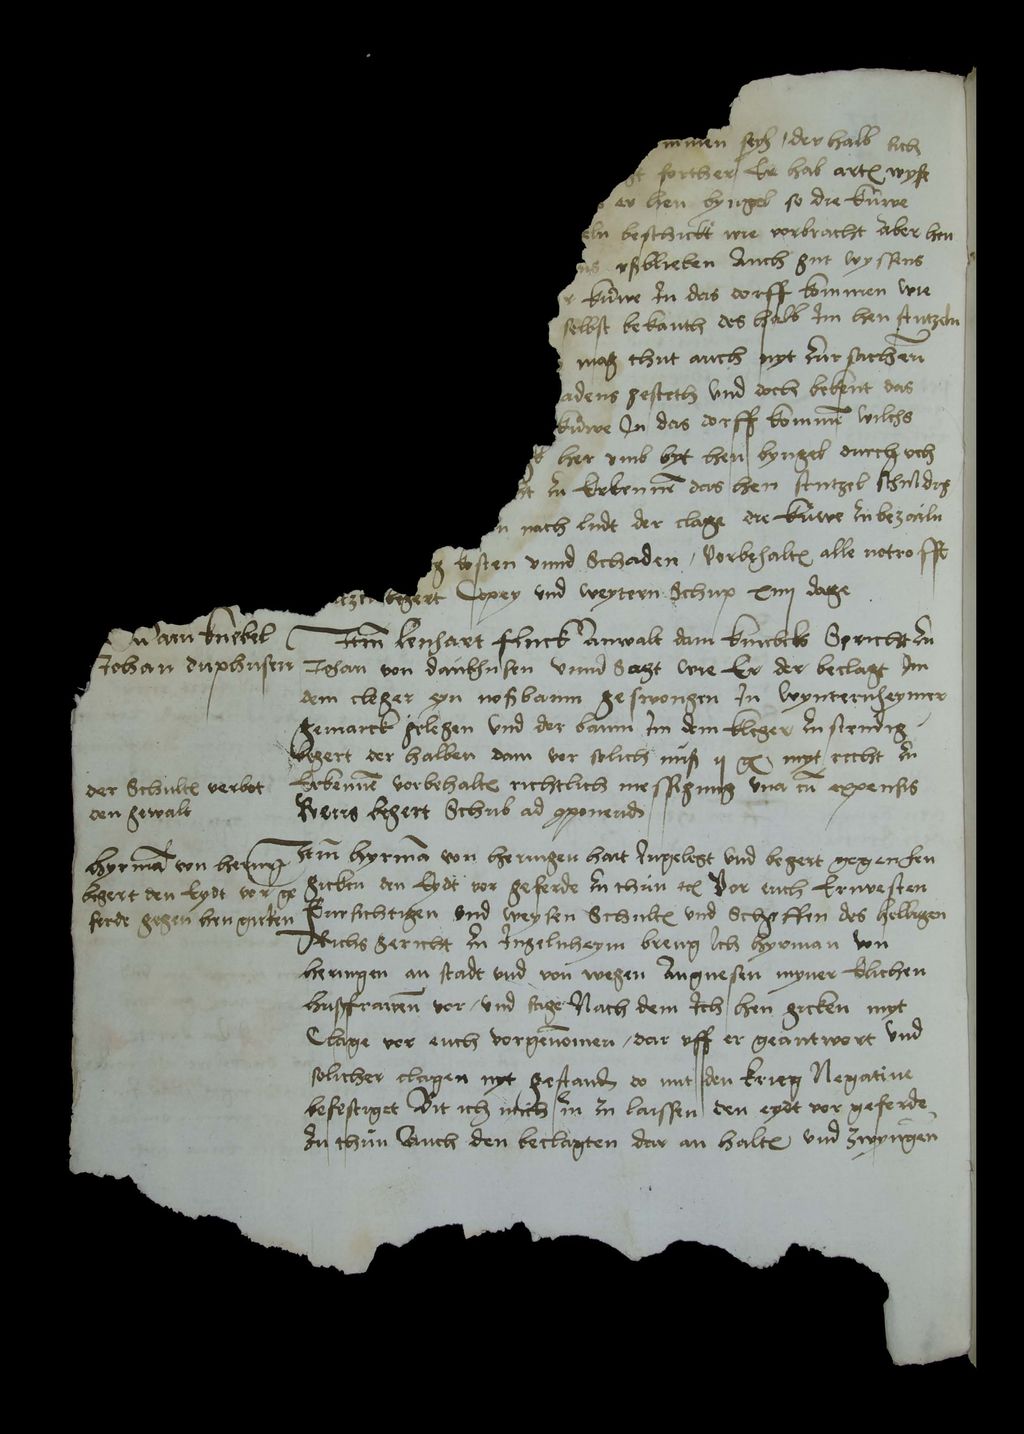 mmen sey / der halb sich
gt forther Er hab artz wyse
er hen byngel so die kuwe
eln beschickt wie vorbracht Aber hen
ns vßblieben Auch gut wyssens
r kuwe In das dorff kommen wie
selbst bekanth des halb Im hen stutzeln
mag thut auch nyt zur sachen
adens gesteth vnd doch bekent das
kuwe In das dorff kommen wilchs
her vmb byt hen byngel durch uch
zu Erkennen das hen stutzel schuldig
n nach ludt der clage die kuwe zu bezaln
g kosten vnnd Schaden / vorbehalten alle notrofft
begert Copey vnd weytern Schup xiiij dage
dam knebel
Johan duxhusen
Item lenhart fluck Anwalt dam knebels Spricht zu
Johan von dauxhusen vnnd Sagt wie Er der beclagt Im
dem cleger eyn noßbaum geswongen In wynternheymer
gemarck gelegen vnd der baum Im dem kleger zustendig
begert der halben dam vor solich nuß ij g myt recht zu
Erkennen vorbehalten richtlich messigung vna cum expensis
Reus begert Schub ad proponendum
der Schultes verbot
den gewalt
hyrman von hering
begert den Eydt vor ge
ferde gegen hen gicken
Item hyrman von heringen hait Ingelegt vnd begert gegen hen
gicken den Eydt vor geferde zu thun etc Vor euch Ernvesten
Fursichtigen vnd weysen Schultes vnd Scheffen des helligen
Richs gericht zu Ingelnheym breng Ich hyrman von
heringen an stadt vnd von wegen Angnesen myner Elichen
husfrauwen vor / vnd sage Nach dem Ich hen gicken myt
Clage vor euch vorgenomen / dar vff er geantwort vnd
solicher clagen nyt gestanden do mit den krieg Negatiue
befestiget Bit ich mich In zu laissen den eydt vor geferde
zu thun Auch den beclagten dar an halten vnd zwyngen